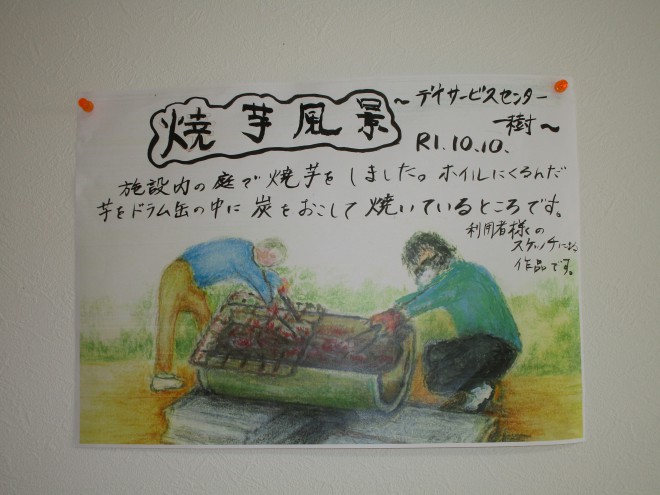 焼芋風景
～デイサービスセンター
樹～
R1.10.10.
施設内の庭で焼芋をしました。ホイルにくるんだ
芋をドラム缶の中に炭をおこして焼いているところです。
利用者様の
スケッチによる
作品です。